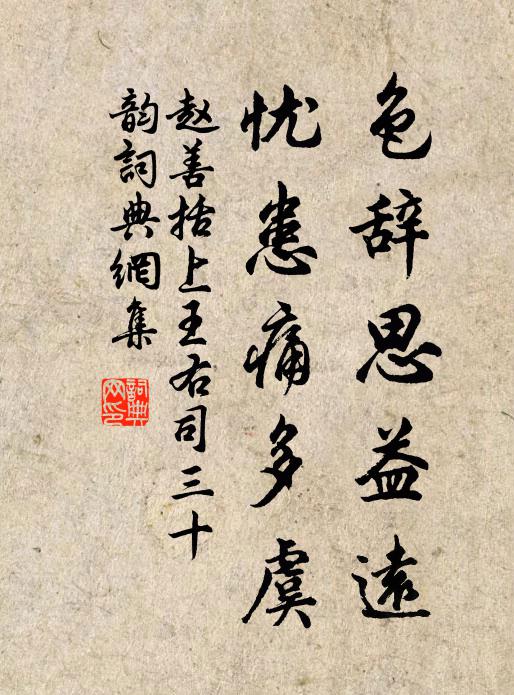 色辞思益遠
忧患痛多虞
赵善括上王右司三十
韵詞典網集
詞典
网印